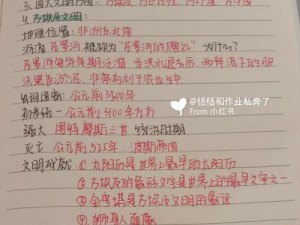 3.四大文明古国:
4.古埃及文明:
地理位置:非洲东北部
河流:尼罗河 被称为"尼罗河的赠礼" 为什么?
尼罗河每年定期泛滥,当洪水退去后,
沃黑色淤泥,非常有利于农业生产
公元前3500年
初步统一 公元前3100年左右
强大 图特摩斯三世统治时期
灭亡 公元前525年 波斯帝国
文明成就:①太阳历是世界上最早的太阳历
②古埃及的象形文字是世界上的最早文字之一
③金字塔是古埃及文明的象征
④狮身人面像
@恬恬和作业私奔了.
From 小红书